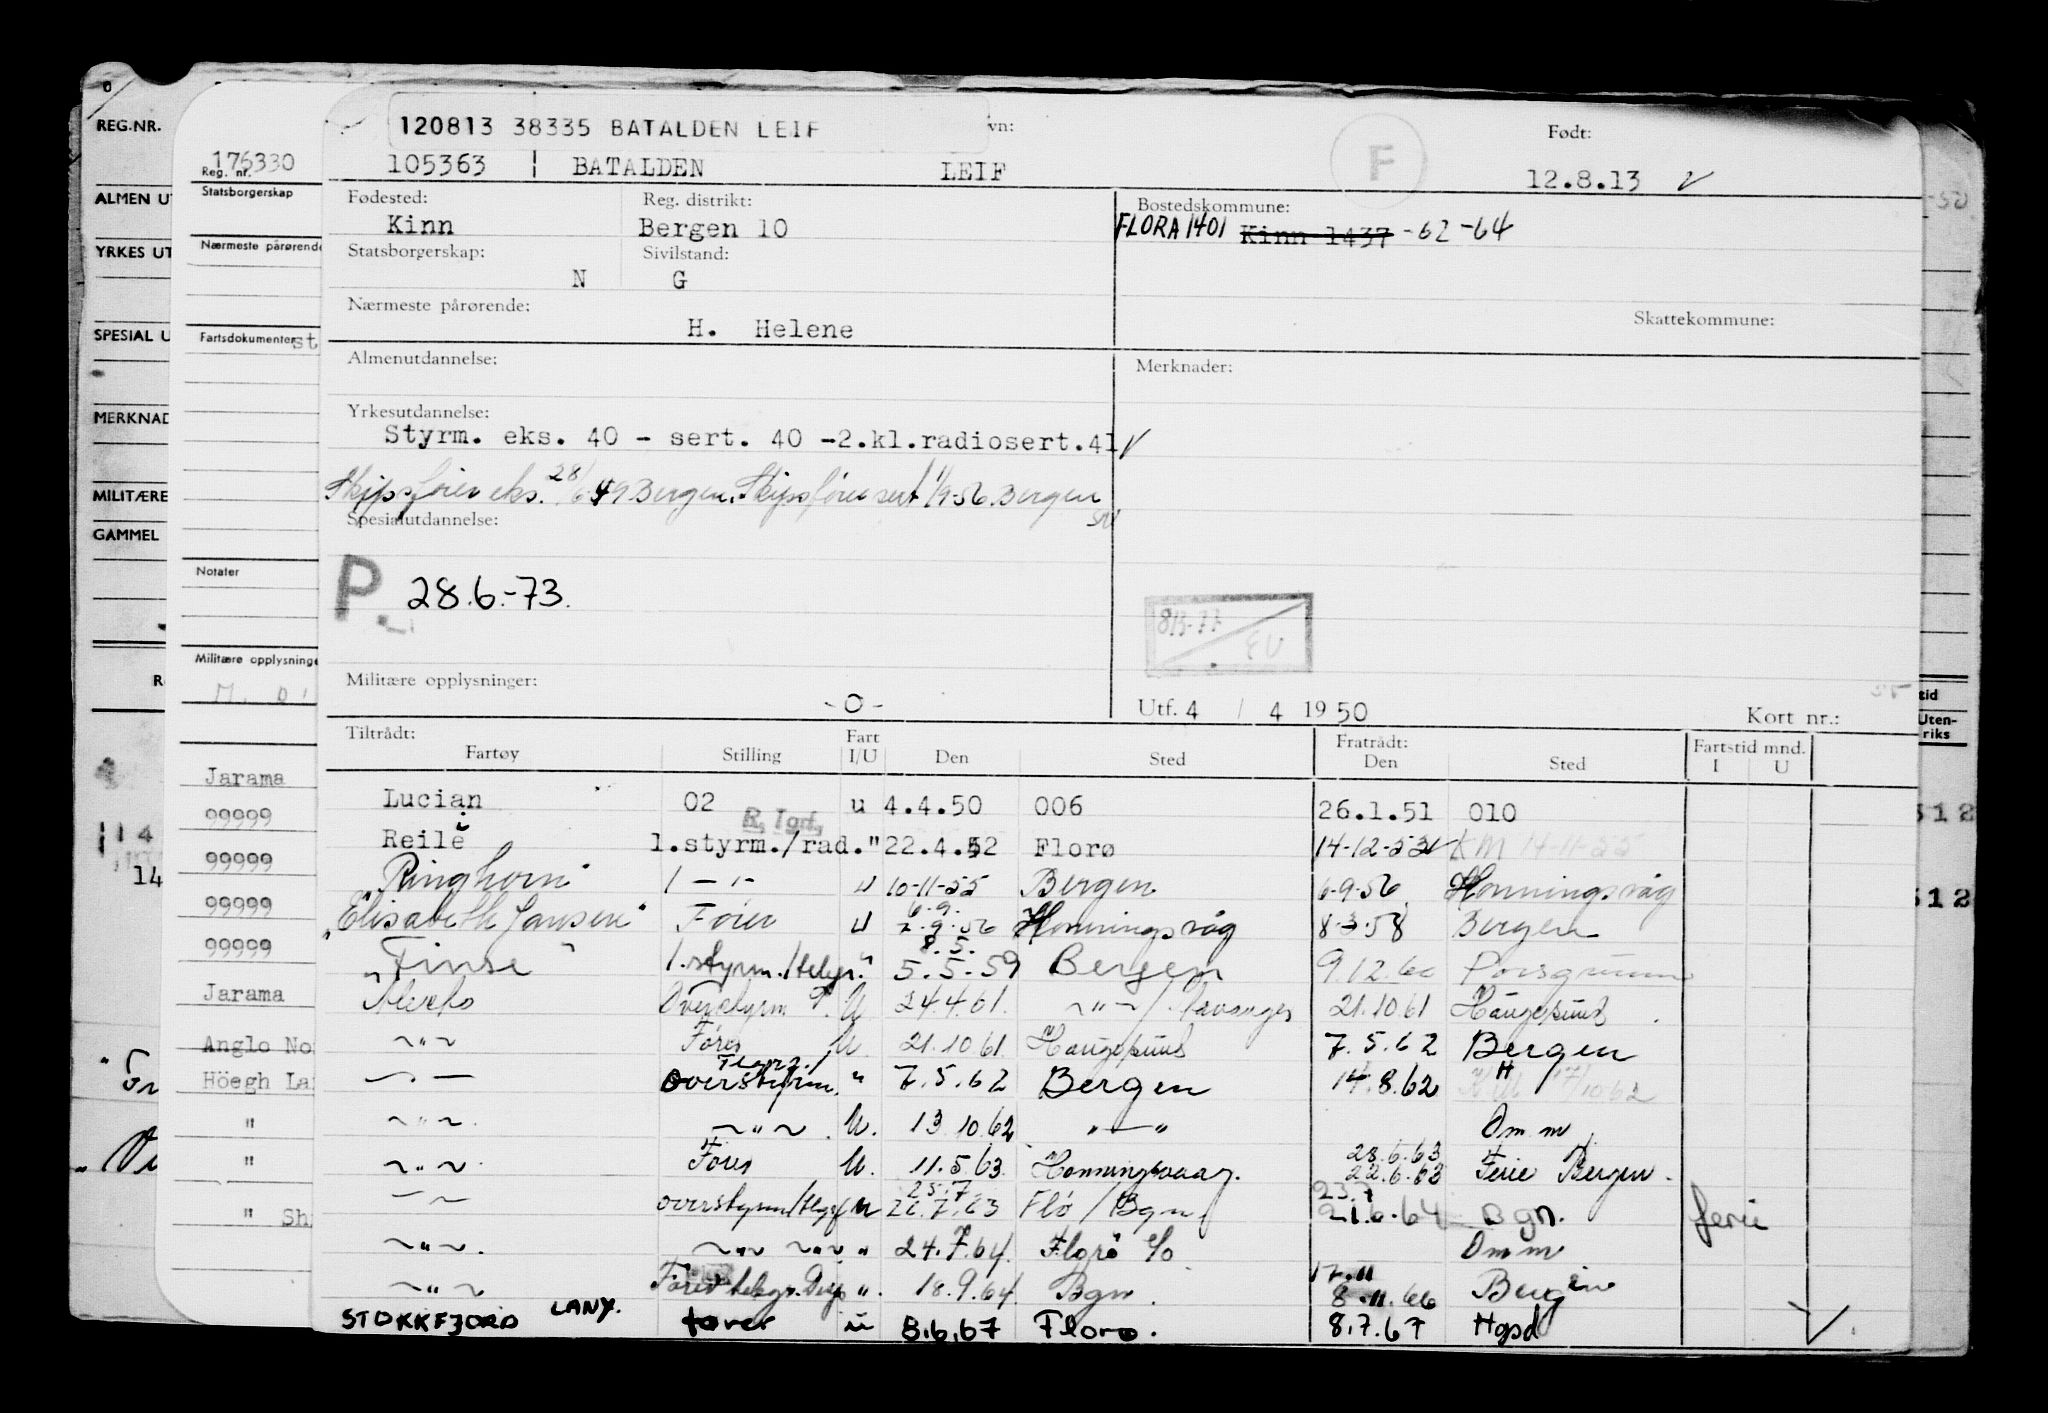 REG.NR.
ALMEN UT
YRKES UT
SPESIAL U
MERKNAD
MILITÆRE
GAMMEL
176330
Reg. nr.
Statsborgerskap
Nærmeste pårørende
Fartsdokumenter st
Notater
Militære opplysninge
Jarama
99999
99999
99999
99999
Jarama
Anglo No
Höegh La
"
"
" Sh
14
14
120813 38335 BATALDEN LEIF
vn:
F
Født:
105363 | BATALDEN LEIF 12.8.13 ✓
Fødested: Kinn
Reg. distrikt: Bergen 10
Bostedskommune:
FLORA 1401 Kinn 1437 -62 -64
Statsborgerskap: N
Sivilstand: G
Nærmeste pårørende:
H. Helene
Skattekommune:
Almenutdannelse:
Merknader:
Yrkesutdannelse:
Styrm. eks. 40 - sert. 40 -2.kl.radiosert.41 ✓
Skipsfører eks. 28/6 49 Bergen. Skipsfører sert 1/9-56 Bergen
Spesialutdannelse:
P. 28.6.-73.
Militære opplysninger:
-0-
Utf. 4 / 4 1950
Kort nr.:
Tiltrådt: Fartøy Stilling Fart I/U Den Sted Fratrådt: Den Sted Fartstid mnd. I U
Lucian 02 u 4.4.50 006 26.1.51 010
R. Tgrf.
Reile 1.styrm./rad. " 22.4.52 Florø 14-12-53 KM 14-11-55
Ringhorn 1 - " - u 10-11-55 Bergen 6-9-56 Honningsvåg
6.9.
"Elisabeth Jansen" Fører u 7.9.56 Honningsvåg 8-3-58 Bergen
8.5.
"Finse" 1.styrm./telgr. " 5.5.59 Bergen 9.12.60 Porsgrunn
Overstyrm T. U 24.4.61. ~"~/Stavanger 21.10.61 Haugesund
~"~ Fører U. 21.10.61 Haugesund 7.5.62 Bergen
overstyrm. " 7.5.62 Bergen 14.8.62 KM 17/10 62
~"~ ~"~ U. 13.10.62 "—" Om m
~"~ Fører U. 11.5.63 Honningsvaag. 28.6.63 22.6.63 Ferie Bergen.
25.7
overstyrm/telgr u 26.7.63 Flo / Bgn. 23.7 21.6.64 Bgn. ferie
~"~. ~"~ ~"~ " 24.7.64. Florö Om m
~"~ Fører telegr. Disp ". 18.9.64 Bgn. 17.11 8.11.66 Bergen
STOKKFJORD LANY. fører u 8.6.67 Florø. 8.7.67 Hgsd
tid
Uten-
riks
512
512